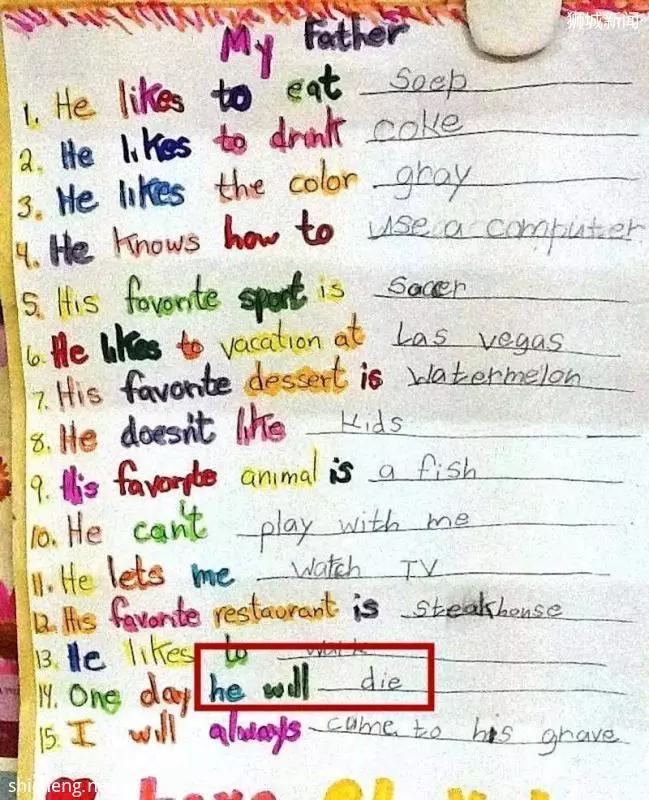 狮城新闻
My Father
1. He likes to eat Soep
2. He likes to drink coke
3. He likes the color gray
4. He knows how to use a computer
5. His favorite sport is Soccer
6. He likes to vacation at Las vegas
7. His favorite dessert is Watermelon
8. He doesn't like Kids
9. His favorite animal is a fish
10. He can't play with me
11. He lets me watch TV
12. His favorite restaurant is steakhouse
13. He likes to work
14. One day he will die
15. I will always came to his grave